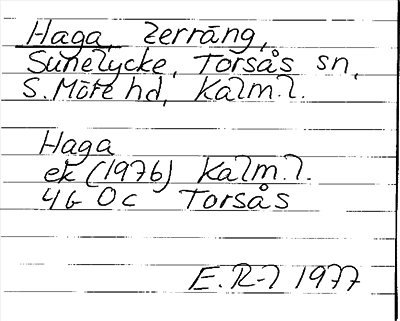 Haga, terräng,
Sunelycke, Torsås sn,
S. Möre hd, Kalm. l.
Haga
ek (1976) Kalm. l.
4G 0c Torsås
E. R-l 1977